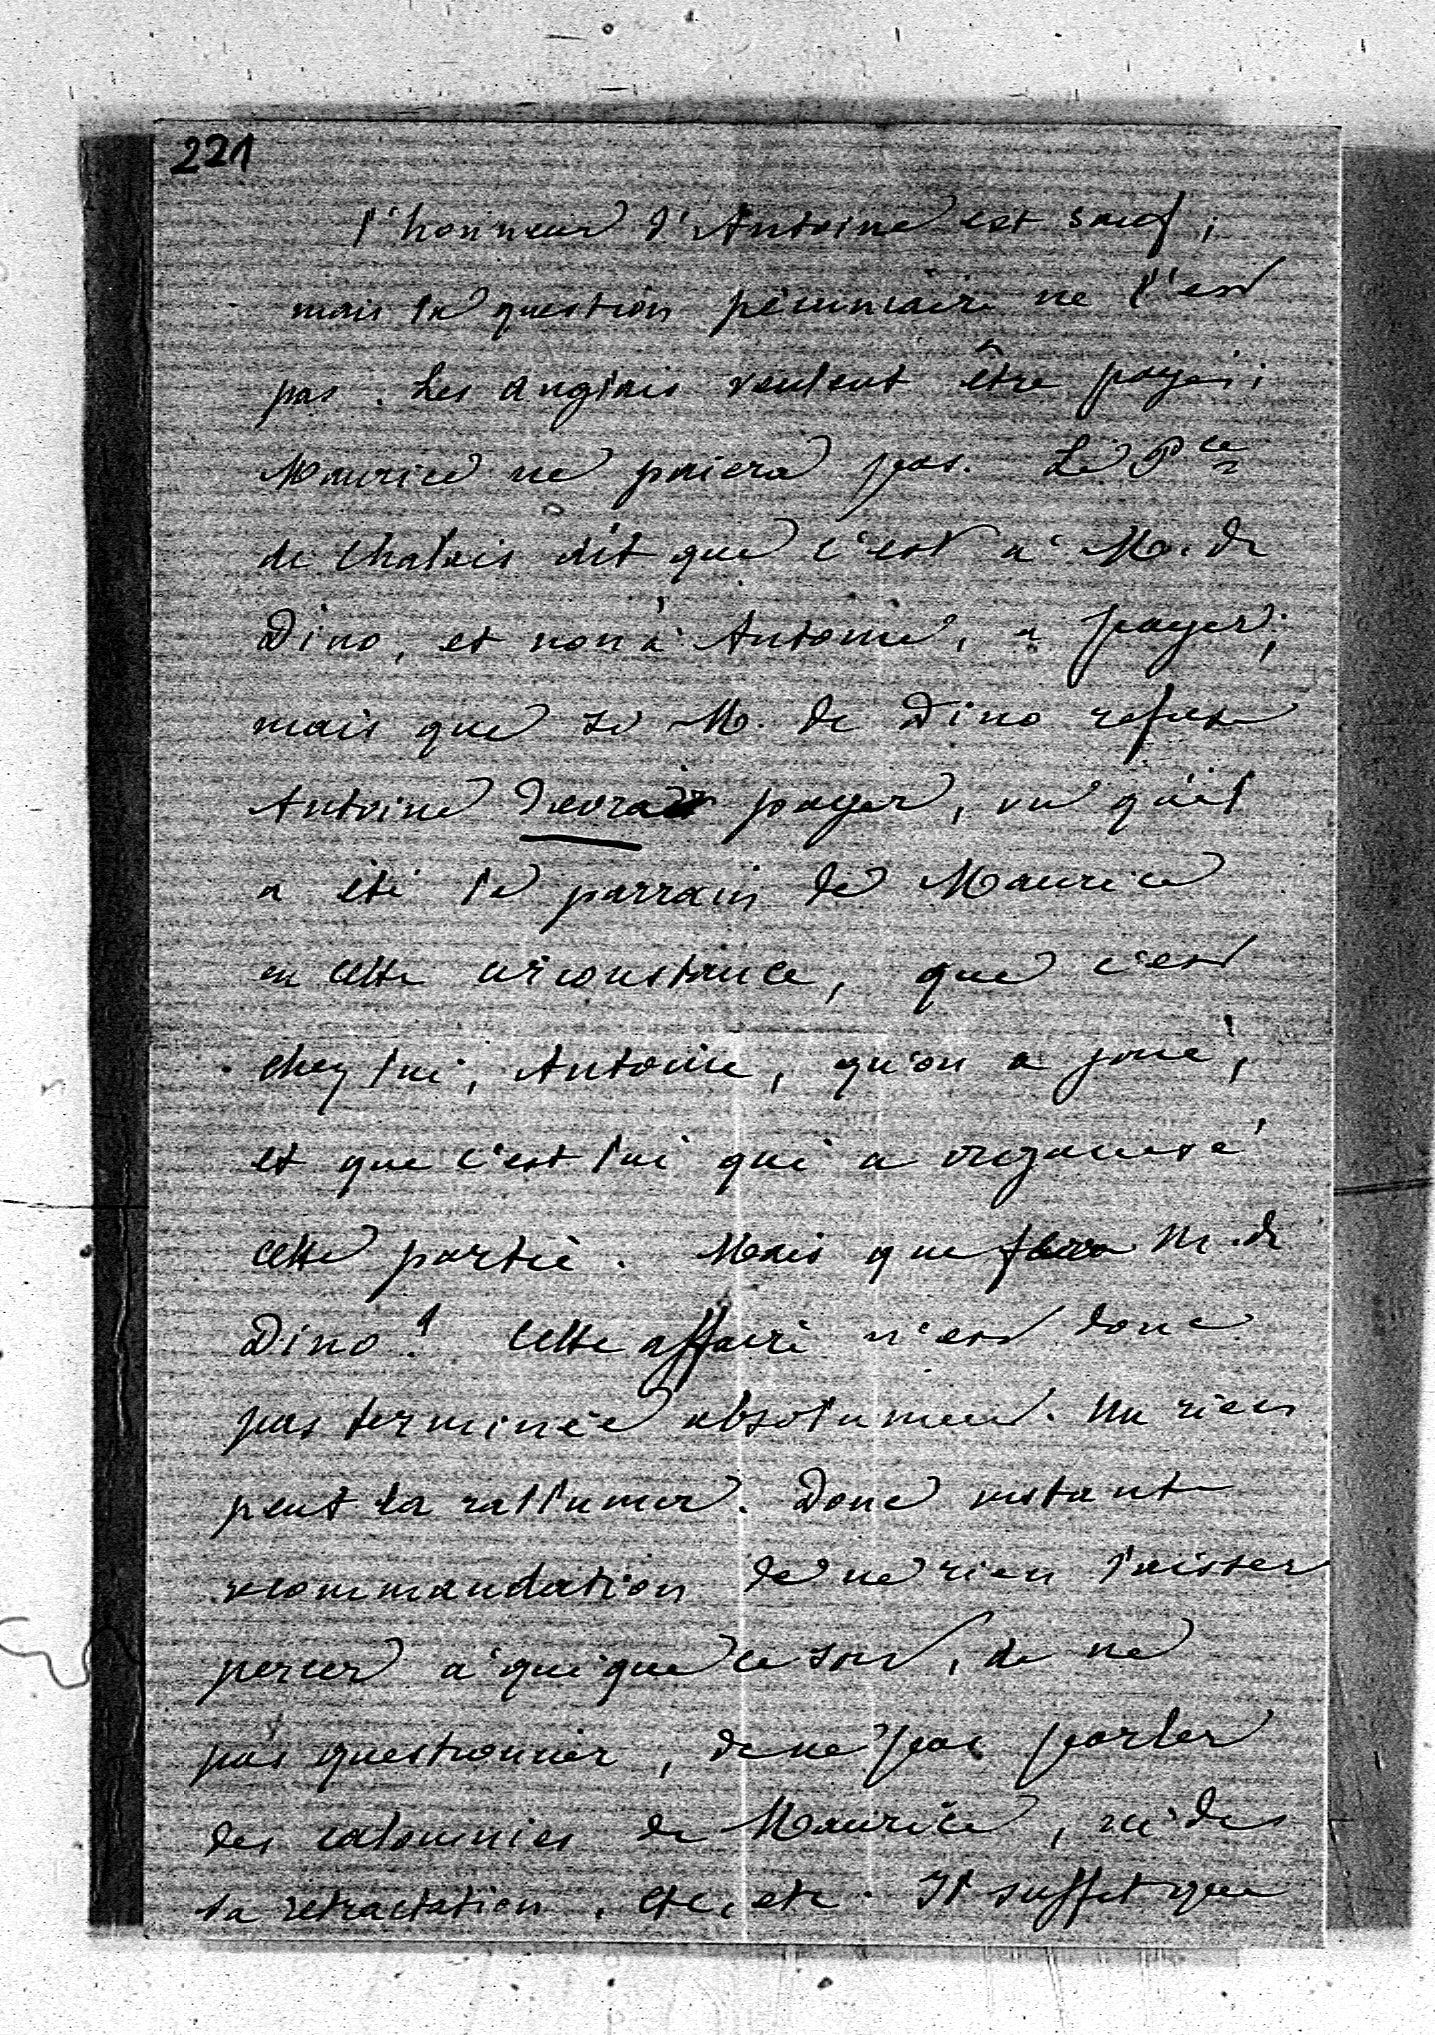 221
l'honneur d'Antoine est sauf ;
mais la question pécuniaire ne l'est
pas. Les anglais veulent être payés ;
Maurice ne paiera pas. Le Pce
de Chalais dit que c'est à M. de
Dino, et non à Antoine, à payer ;
mais que si M. de Dino refuse
Antoine devra payer, vu qu'il
a été le parrain de Maurice
en cette circonstance, que c'est
chez lui, Antoine, qu'on a joué,
et que c'est lui qui a organisé
cette partie. Mais que fera M. de
Dino ? Cette affaire n'est donc
pas terminée absolument. Un rien
peut la rallumer. Donc instante
recommandation de ne rien laisser
percer à qui que ce soit, de ne
pas questionner, de ne pas parler
des calomnies de Maurice, ni de
sa rétractation, etc, etc. Il suffit que